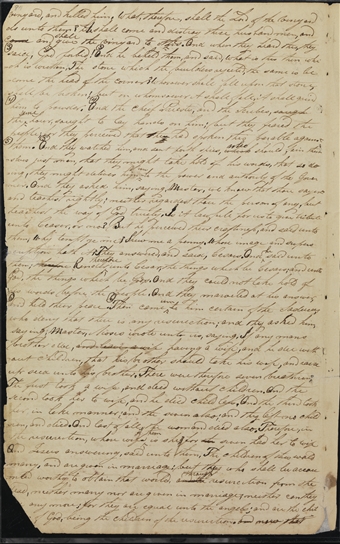 vineyard, and killed him, what therefore, shall the Lord of the vineyard
do unto them? He shall come and destroy these husbandmen, and
shall give the vineyard to others. And when they heard this they
said, God forbid. And he beheld them, and said, what is this then which
is written, The stone which the builders rejected, the same is be
come the head of the corner? Whosoever shall fall upon that stone,
shall be broken; but on whomsoever it shall fall, it shall grind
him to powder. And the chief priests, and the scribes, the same
hour, sought to lay hands on him; but they feared the
people; for they perceived that he had spoken this parable against
them. And they watched him, and sent forth spies, which should feign them
selves just men, that they might take hold of his words, that so do
ing, they might deliver him unto the power and authority of the Gover
nor. And they asked him, saying, Master, we know that thou sayest
and teachest rightly; neither regardest thou the person of any, but
teachest the way of God truly, Is it lawful for us to give tribute
unto Cesar, or no? But he perceived their craftiness, and said unto
them, Why tempt ye me? Shew me a penny. Whose image and super
scription hath it? They answered, and said, Cesar's. And he said unto
them, Render unto Cesar, the things which be Cesar's, and unto
God, the things which be God's. And they could not take hold of
his words, before the people. And they marvelled at his answer,
and held their peace. Then came to him certain of the Saducees,
who deny that there is any resurrection; and they asked him,
saying, Master, Moses wrote unto us, saying, If any man's
brother die, having a wife, and he die with
out children, that his brother should take his wife, and raise
up seed unto his brother. There were therefore seven brethren;
The first took a wife, and died without children. And the
second took her to wife, and he died childless. And the third took
her in like manner; and the seven also; and they left no child
ren, and died. And last of all, the woman died also. Therefore, in
the resurrection, whose wife is she? for seven had her to wife.
And Jesus answering, said unto them, The children of this world
marry, and are given in marriage; but they who shall be accoun
ted worthy to obtain that world, through the resurrection from the
dead, neither marry nor are given in marriage; neither can they
die any more; for they are equal unto the angels; and are the chil
dren of God, being the children of the resurrection. and now that